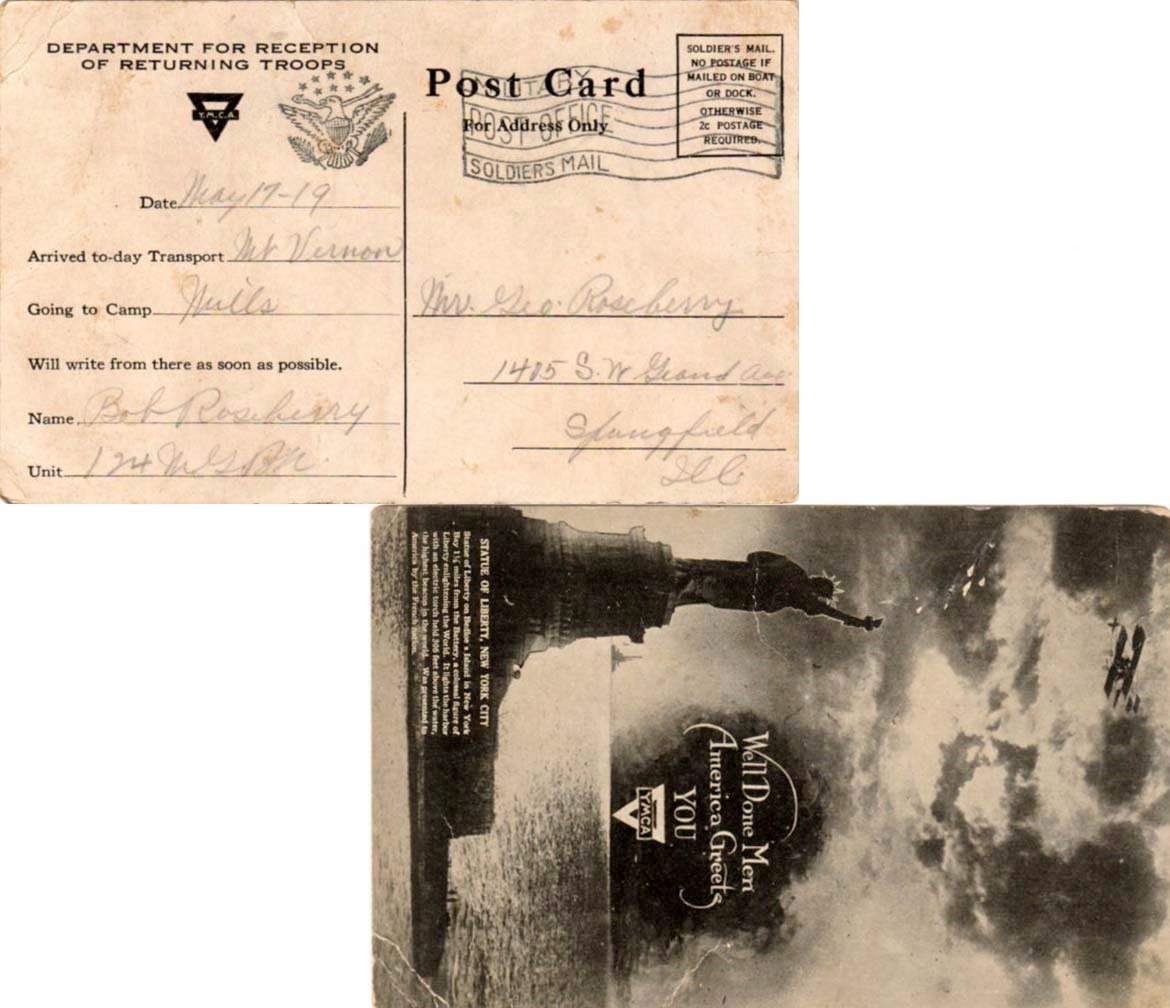 DEPARTMENT FOR RECEPTION
OF RETURNING TROOPS
Y.M.C.A.
Date May 17-19
Arrived to-day Transport Mt Vernon
Going to Camp Mills
Will write from there as soon as possible.
Name Bob Roseberry
Unit 124 M G BN
Post Card
For Address Only
MILITARY
POST OFFICE
SOLDIERS MAIL
SOLDIER'S MAIL,
NO POSTAGE IF
MAILED ON BOAT
OR DOCK.
OTHERWISE
2c POSTAGE
REQUIRED.
Mr. Geo. Roseberry
1405 S. W Grand Ave
Springfield
Ill
STATUE OF LIBERTY, NEW YORK CITY
Statue of Liberty on Bedloe's Island in New York
Bay 1¼ miles from the Battery, a colossal figure of
Liberty enlightening the World. It lights the harbor
with an electric torch held 305 feet above the water,
the highest beacon in the world. Was presented to
America by the French nation.
Well Done Men
America Greets
YOU
YMCA